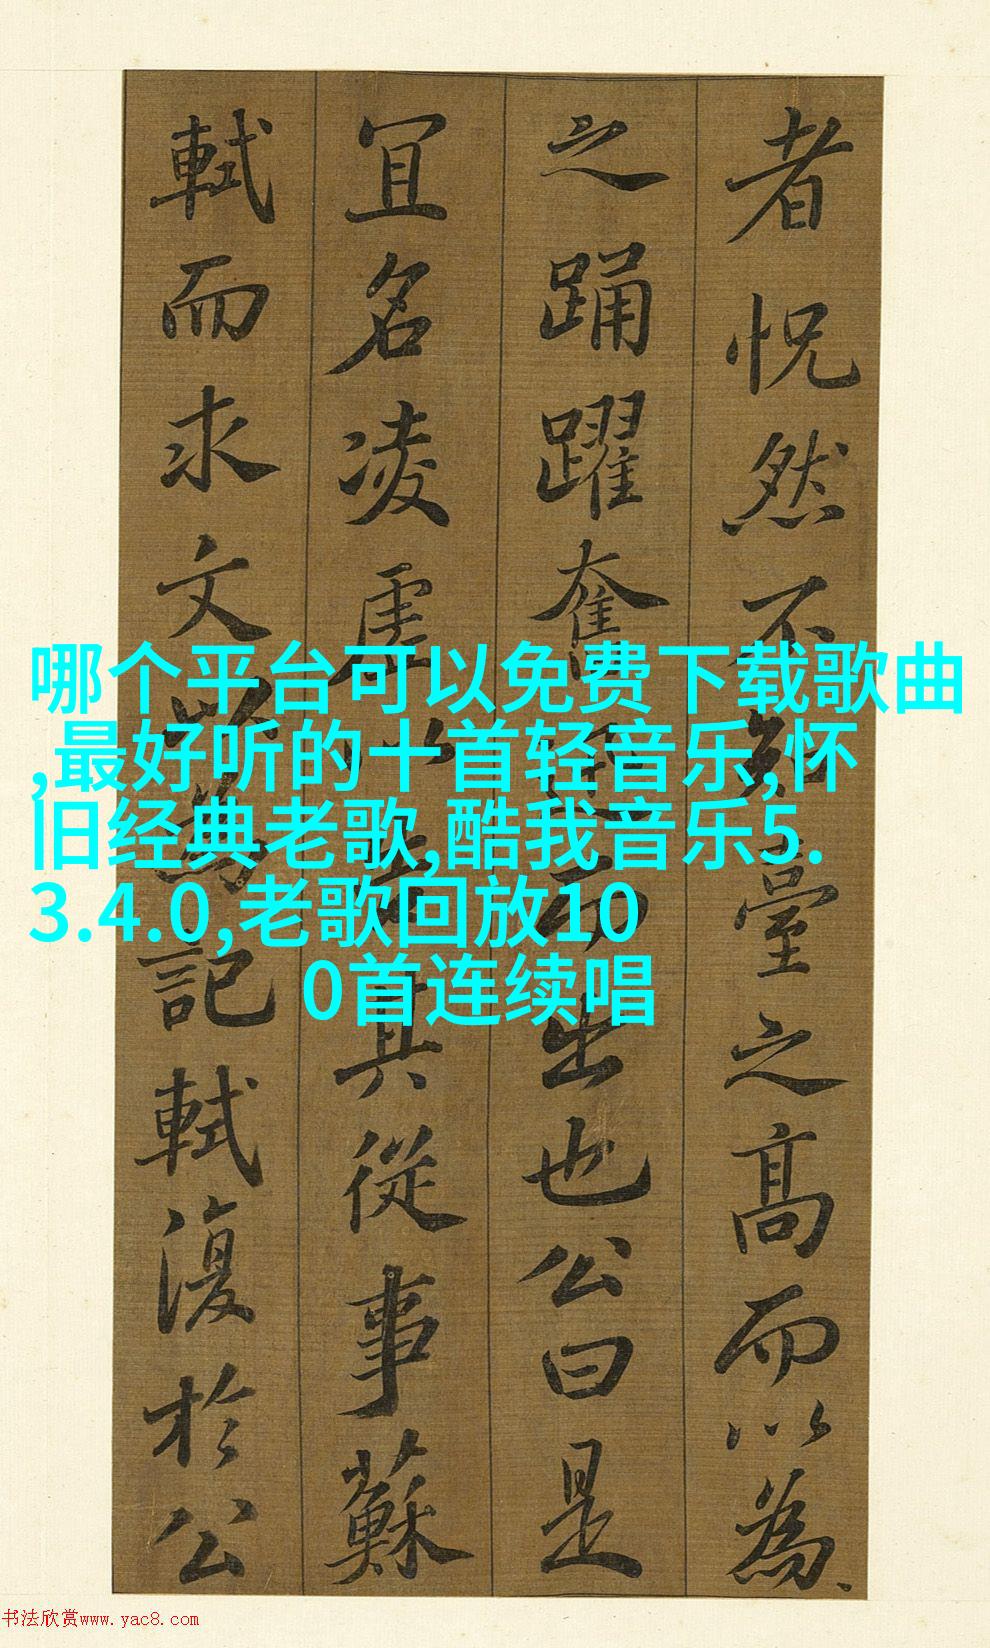 者怳然不知臺之高而以為
之踊躍奮迅而出也公曰是
冝名凌虛以告其從事蘇
軾而求文以為記軾復於公
哪个平台可以免费下载歌曲
,最好听的十首轻音乐,怀
旧经典老歌,酷我音乐5.
3.4.0,老歌回放10
0首连续唱
书法欣赏www.yac8.com